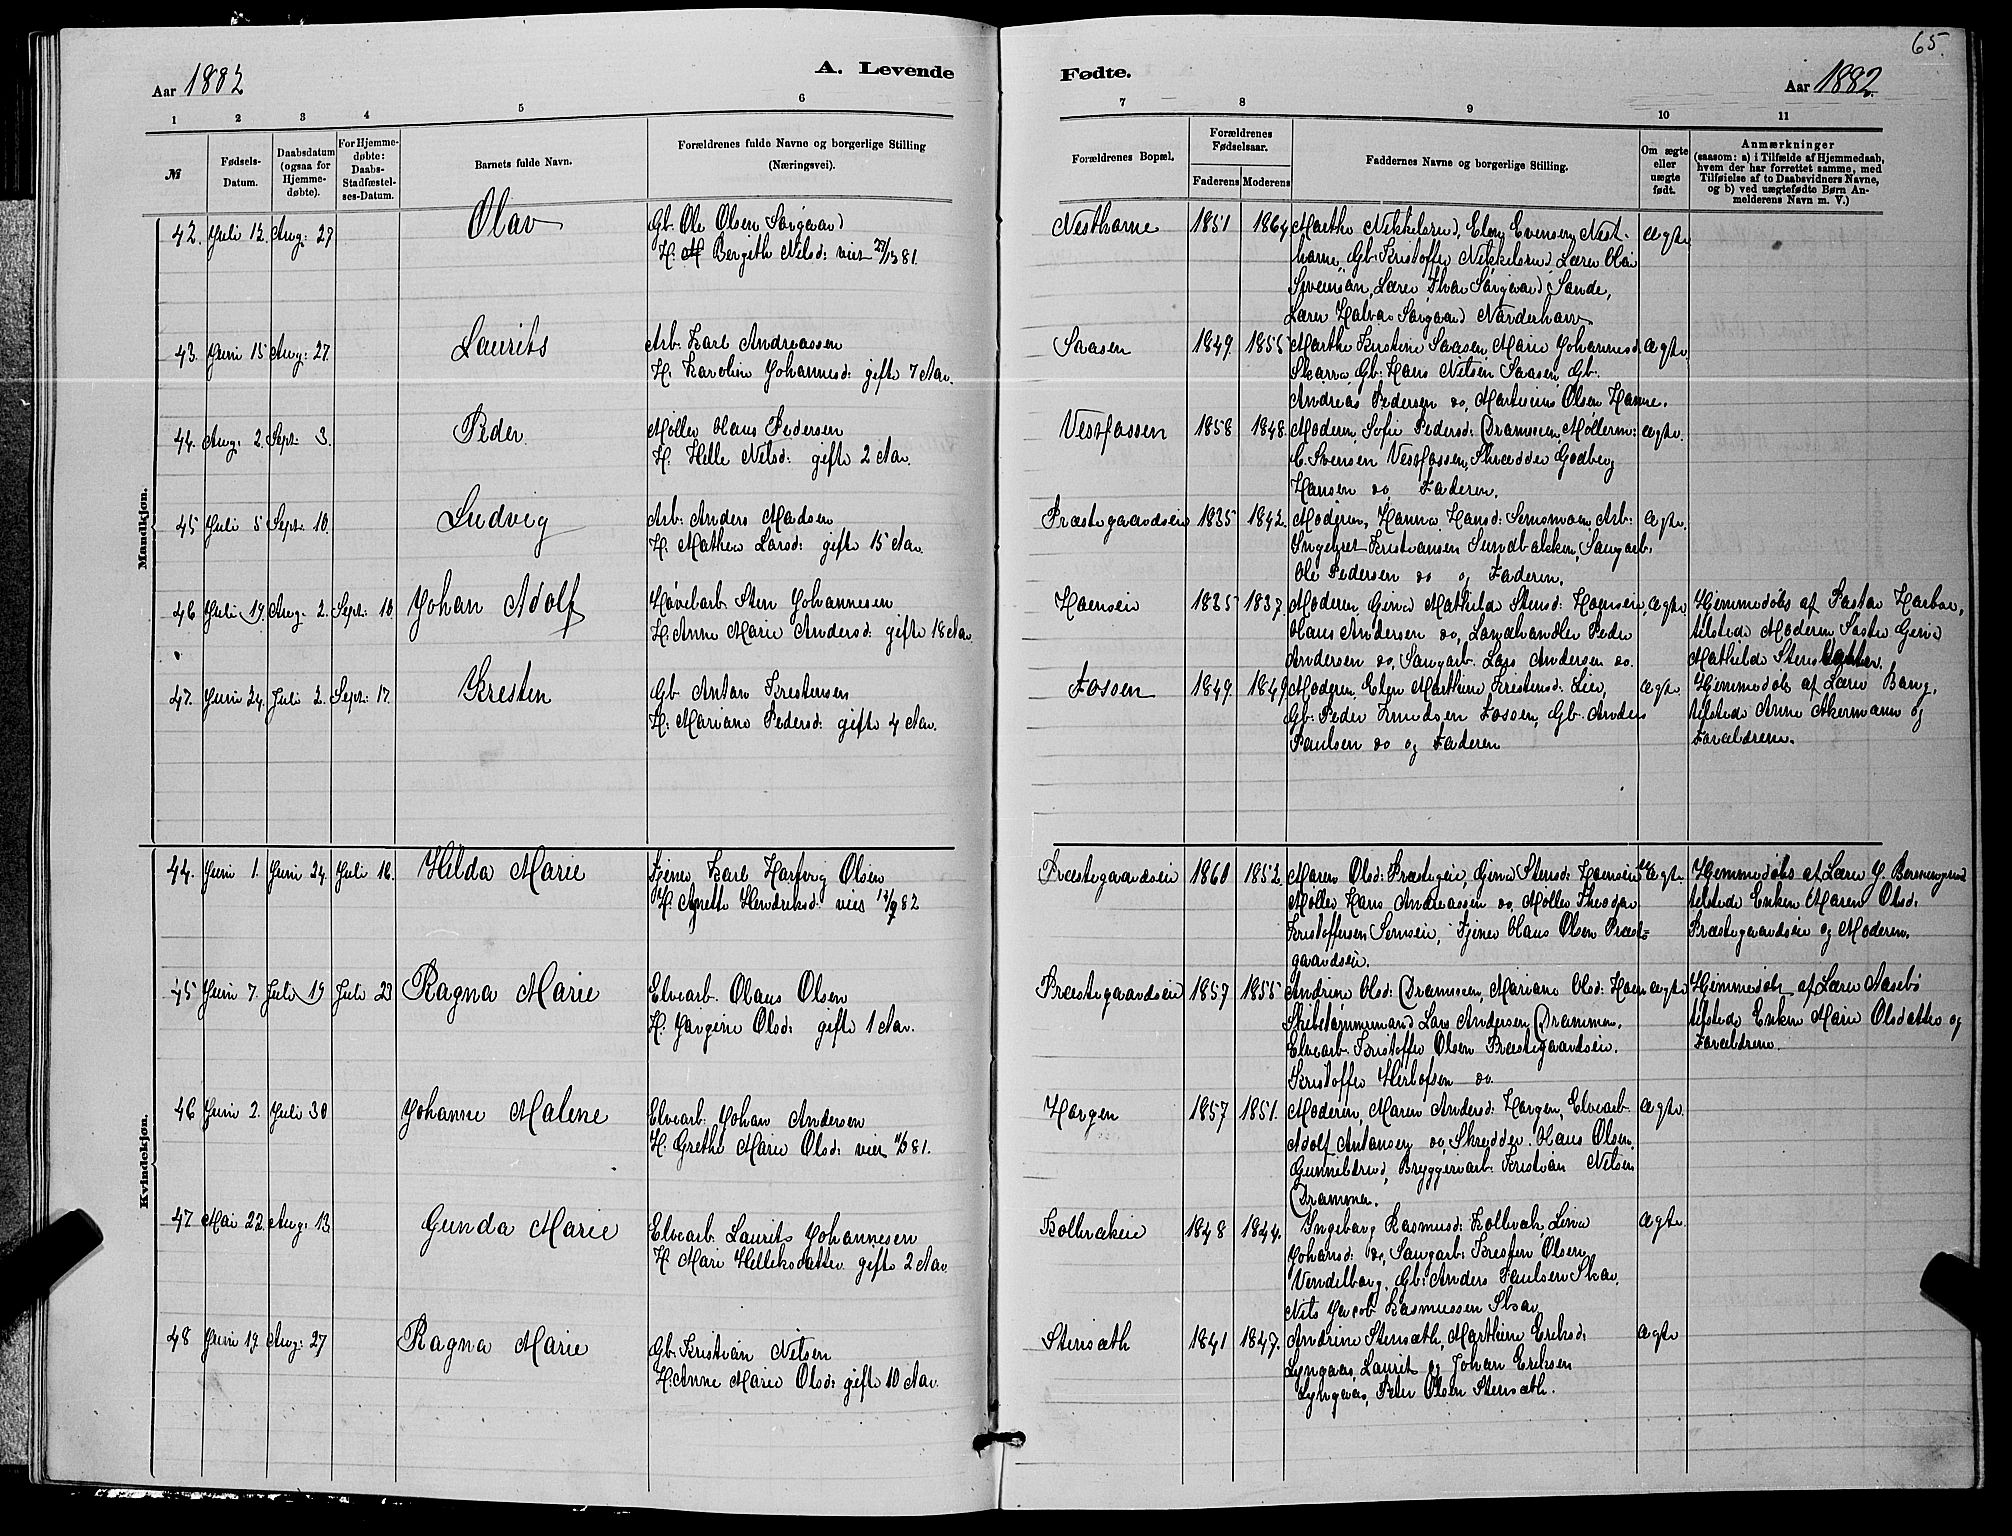 65.
Aar 1882
A. Levende
Fødte.
Aar 1882.
1 2 3 4 5 6 7 8 9 10 11
№
Fødsels-
Datum.
Daabsdatum
(ogsaa for
Hjemme-
døbte).
For Hjemme-
døbte:
Daabs-
Stadfæstel-
ses-Datum.
Barnets fulde Navn.
Forældrenes fulde Navne og borgerlige Stilling
(Næringsvei).
Forældrenes Bopæl.
Forældrenes
Fødselsaar.
Faderens Moderens
Faddernes Navne og borgerlige Stilling.
Om ægte
eller
uægte
født.
Anmærkninger
(saasom: a) i Tilfælde af Hjemmedaab,
hvem der har forrettet samme, med
Tilføielse af to Daabsvidners Navne,
og b) ved uægtefødte Børn An-
melderens Navn m. V.)
Mandkjøn.
42. Juli 12. Aug: 27 Olav
Gb. Ole Olsen Sørgaard
H. Bergith Nilsd: viet
Nestharne 1851 1864
Marthe Nikkelsrud, Elen Evensen Nest-
harne, Gb: Kristoffer Nikkelsrud, Lærer Olai
Svensen, Lærer Sørgaard, Sande,
Lærer Halvor Sørgaard
ægte
43. Juni 15. Aug: 27. Laurits
Arb. Karl Andreassen
H. Karoline Johannesd: gifte 7 Aar.
Saasen 1849 1855
Marthe Kristine Saasen, Marie Johannesd.
Skarra, Gb: Hans Nilsen Saasen, Gb.
Andreas Pedersen do, Martinius Olsen Harne.
ægte.
44. Aug: 2. Sept: 3. Peder
Møller Hans Pedersen
H. Helle Nilsd: gifte 2 Aar.
Vestfossen 1858 1848.
Moderen, Sofie Pedersd: Drammen, Møllerm:
C. Svensen Vestfossen, Skrædder Godberg
Hansen do, Faderen.
ægte.
45 Juli 5 Sept: 10. Ludvig
Arb: Anders Madsen
H. Mathea Larsd: gifte 15 Aar.
Præstegaardseie 1835 1842.
Moderen, Hanna Hansd: Arb:
Ingebret Kristiansen Sundbakken, Saugarb.
Ole Pedersen do og Faderen.
ægte.
46 Juli 19. Aug: 2. Sept: 10 Johan Adolf
Høvlarb. Sten Johannesen
H. Anne Marie Andersd: gifte 18 Aar.
Hoenseie 1835 1837.
Moderen, Gina Mathilde Stensd: Hoenseie,
Hans Andersen do, Landhandler Peder
Andersen do, Saugarb. Lars Andersen do.
ægte.
Hjemmedøbt af Pastor Harboe,
tilstede Moderen, Søster Gina
Mathilde
47. Juni 24. Juli 2. Sept: 17. Kresten
Gb. Anton Krestensen
H. Mariane Pedersd: gifte 4 Aar.
Fossen 1849 1849
Moderen, Elen Marthine Kristensd: Lier,
Gb: Peder Knudsen Fossen, Gb. Anders
Paulsen do og Faderen
ægte.
Hjemmedøbt af Lærer Bang,
tilstede Anne Akermann og
Forældrene.
Kvindekjøn.
44. Juni 1. Juni 24. Juli 16. Hilda Marie
Tjener Karl Hartvig Olsen
H. Agnette Hendriksd: viet
Præstegaardseie 1860 1852.
Maren Olsd: Præsteg:eie, Gina Stensd: Hoenseie,
Møller Hans Andreassen do, Møller Theodor
Kristoffersen Semseie, Tjener Hans Olsen Præste-
gaardseie.
ægte.
Hjemmedøbt af Lærer
tilstede Enken Maren Olsd:
Præstegaardseie og Moderen.
45 Juni 7. Juli 19 Juli 23 Ragna Marie
Elvearb. Olaus Olsen
H. Jørgine Olsd: gifte 1 Aar.
Præstegaardseie 1857 1855
Andrine Olsd: Drammen, Mariane Olsd: Hoen
Skibstømmermand Lars Andersen Drammen.
Elvearb. Kristoffer Olsen Præstegaardseie.
Kristoffer Herlofsen do.
ægte
Hjemmedøbt af Lærer Aasebø
tilstede Enken Marie Olsdatter og
Forældrene.
46 Juni 2. Juli 30 Johanne Malene
Elvearb. Johan Andersen
H. Grethe Marie Olsd: viet
Horgen 1857 1851.
Moderen, Maren Andersd: Horgen, Elvearb.
Adolf Antonsen do, Skrædder Hans Olsen
Gunnildrud, Bryggeriarb. Kristian Nilsen
Drammen.
ægte.
47 Mai 22. Aug: 13. Gunda Marie
Elvearb. Laurits Johannesen
H. Mari Helleksdatter gifte 2 Aar.
Kolbrækeie 1848 1844.
Ingeborg Rasmusd: Kolbræk, Lina
Johansd: do, Saugarb: Kresten Olsen
Vendelborg, Gb: Anders Paulsen Skar,
Nils Jacob Rasmussen Skar
ægte.
48 Juni 19. Aug: 27 Ragna Marie
Gb. Kristian Nilsen
H. Anne Marie Olsd: gifte 10 Aar.
Stensæth 1841 1847.
Andrine Stensæth, Marthine Eriksd:
Lyngaas, Laurit og Johan Eriksen
Lyngaas, Peter Olsen Stensæth.
ægte